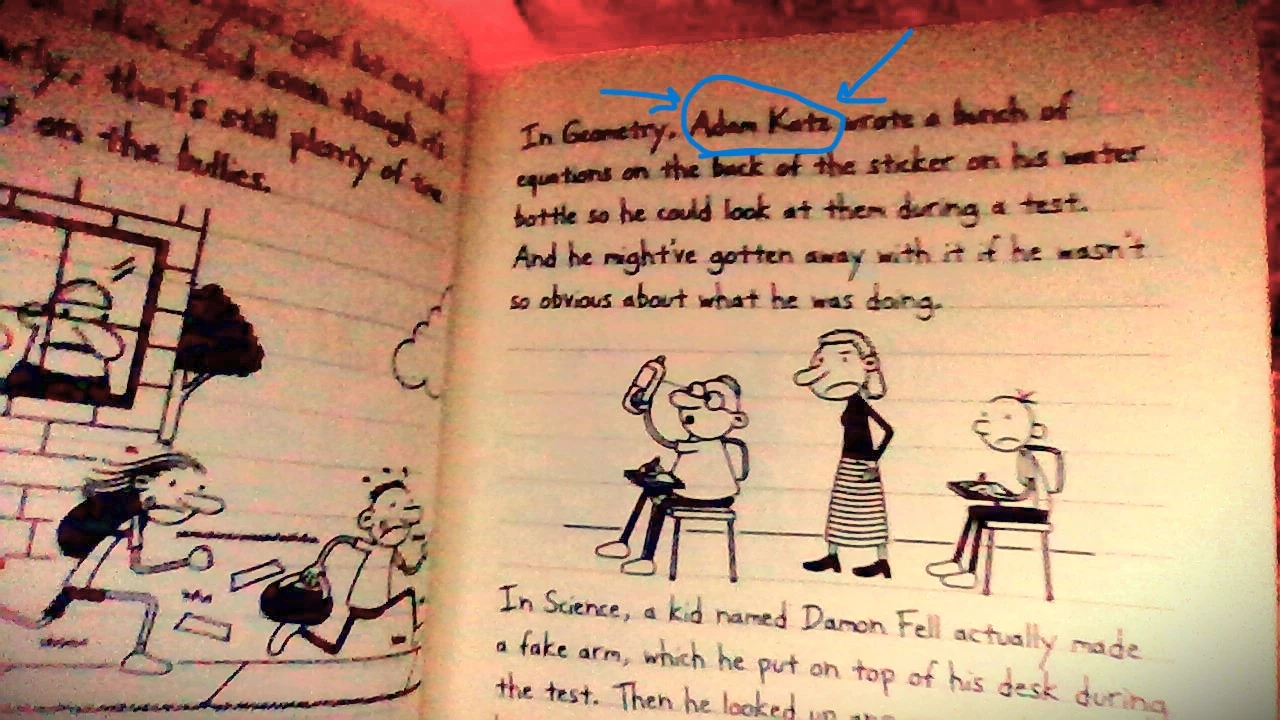 got out of
even though it's
that's still plenty of
on the bullies.
In Geometry, Adam Katz wrote a bunch of
equations on the back of the sticker on his water
bottle so he could look at them during a test.
And he might've gotten away with it if he wasn't
so obvious about what he was doing.
In Science, a kid named Damon Fell actually made
a fake arm, which he put on top of his desk during
the test. Then he looked up